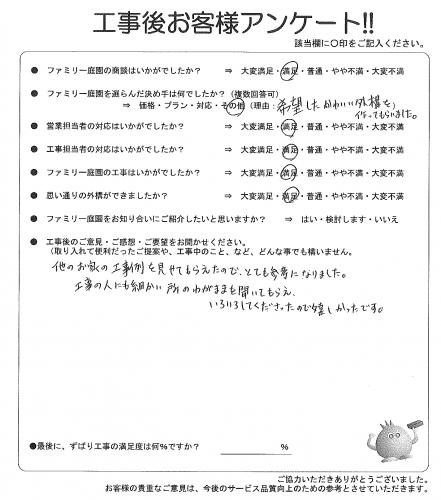 工事後お客様アンケート!!
該当欄に〇印をご記入ください。
● ファミリー庭園の商談はいかがでしたか? ⇒ 大変満足・満足・普通・やや不満・大変不満
● ファミリー庭園を選らんだ決め手は何でしたか?(複数回答可)
⇒ 価格・プラン・対応・その他(理由:希望した、かわいい外構を)
作ってもらいました。
● 営業担当者の対応はいかがでしたか? ⇒ 大変満足・満足・普通・やや不満・大変不満
● 工事担当者の対応はいかがでしたか? ⇒ 大変満足・満足・普通・やや不満・大変不満
● ファミリー庭園の工事はいかがでしたか? ⇒ 大変満足・満足・普通・やや不満・大変不満
● 思い通りの外構ができましたか? ⇒ 大変満足・満足・普通・やや不満・大変不満
● ファミリー庭園をお知り合いにご紹介したいと思いますか? ⇒ はい・検討します・いいえ
● 工事後のご意見・ご感想・ご要望をお聞かせください。
(取り入れて便利だったご提案や、工事中のこと、など、どんな事でも構いません。
他のお家の工事例を見せてもらえたので、とても参考になりました。
工事の人にも細かい所のわがままを聞いてもらえ、
いろいろしてくださったので嬉しかったです。
●最後に、ずばり工事の満足度は何%ですか? %
ご協力いただきありがとうございました。
お客様の貴重なご意見は、今後のサービス品質向上のための参考とさせていただきます。